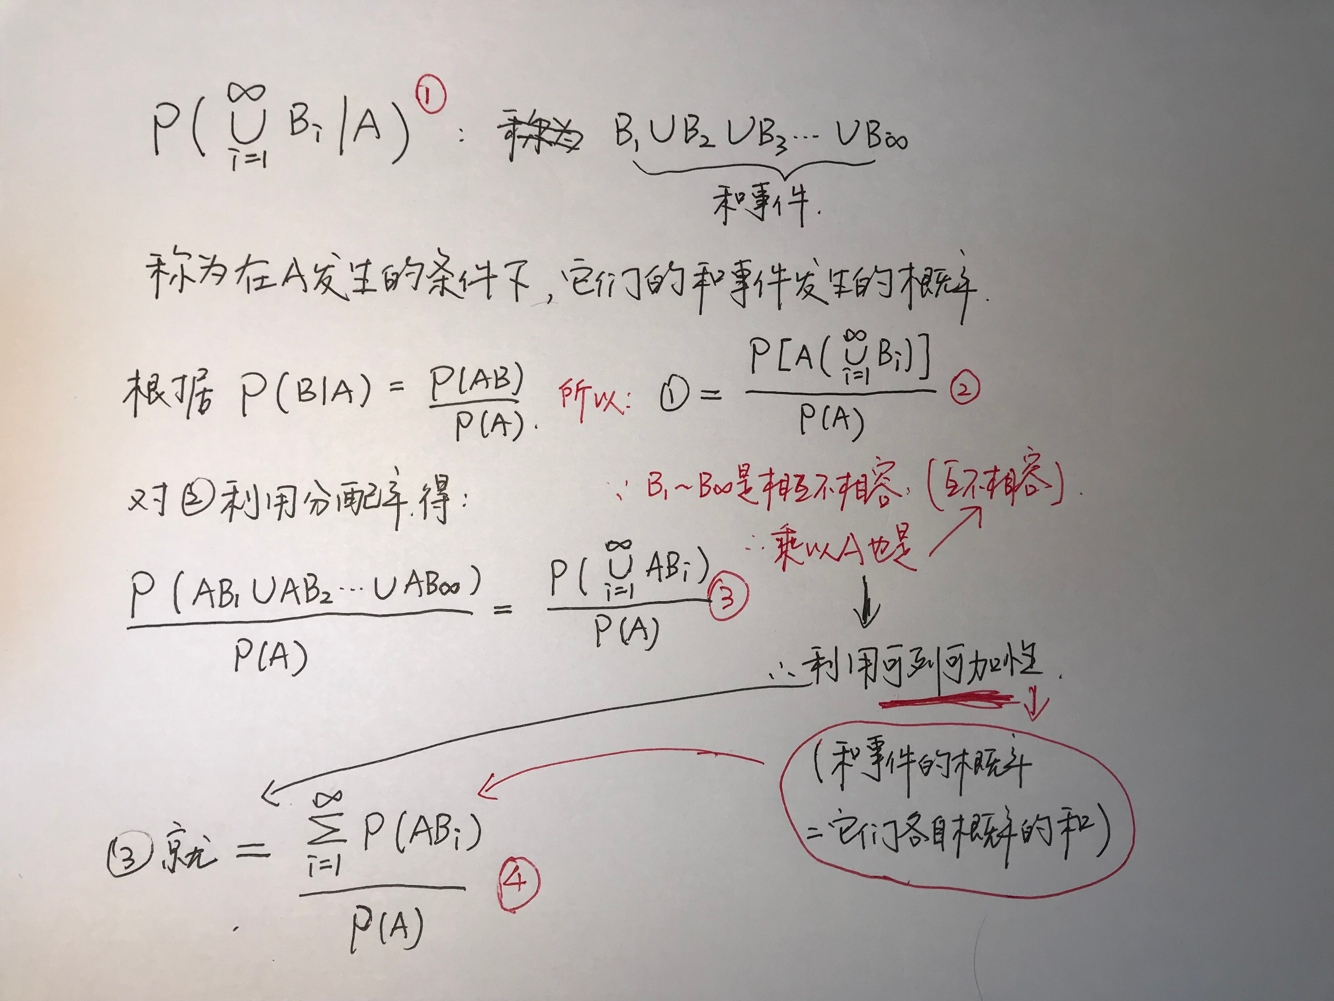 P(⋃_{i=1}^{∞} Bᵢ|A) ① : B₁∪B₂∪B₃…∪B∞
和事件.
称为在A发生的条件下,它们的和事件发生的概率.
根据 P(B|A) = P(AB)/P(A). 所以: ① = P[A(⋃_{i=1}^{∞} Bᵢ)]/P(A) ②
对②利用分配率.得:
∵ B₁~B∞是相互不相容.(互不相容).
∴ 乘以A也是
P(AB₁∪AB₂…∪AB∞)/P(A) = P(⋃_{i=1}^{∞} ABᵢ)/P(A) ③
∴利用可列可加性.
(和事件的概率
=它们各自概率的和)
③就 = ∑_{i=1}^{∞} P(ABᵢ)/P(A) ④